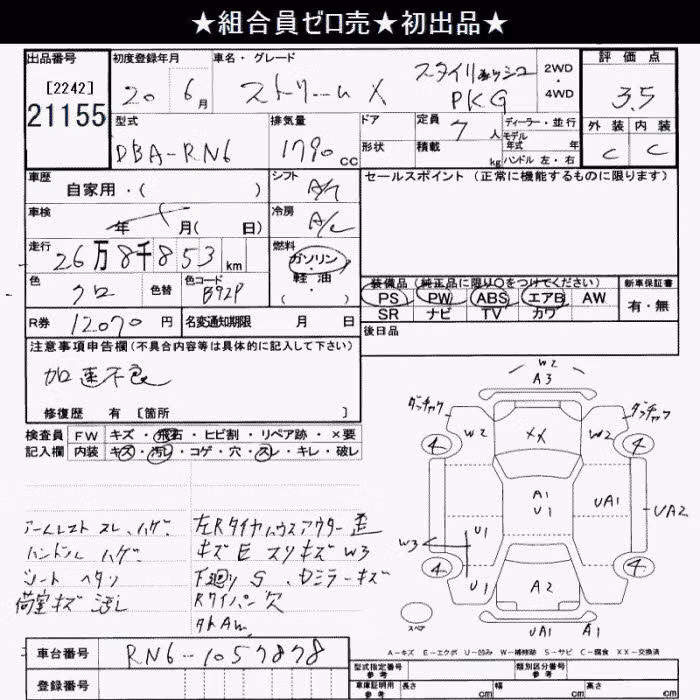 ★組合員ゼロ売★初出品★
出品番号 初度登録年月 車名・グレード 評価点
[2242] 20 6月 ストリーム X スタイリッシュ PKG 2WD・4WD 3.5
21155
型式 排気量 ドア 定員 ディーラー・並行 外装 内装
DBA-RN6 1790cc 形状 積載 7人 kg モデル年式 年 ハンドル 左・右 C C
車歴 シフト セールスポイント(正常に機能するものに限ります)
自家用・( ) A/T
車検 年 月( 日) 冷房 A/C
走行 26万8千853km 燃料 ガソリン・軽油・( )
色 クロ 色替 色コード B92P
装備品(純正品に限り○をつけてください) 新車保証書
PS PW ABS エアB AW 有・無
SR ナビ TV カワ
R券 12070円 名変通知期限 月 日 後日品
注意事項申告欄(不具合内容等は具体的に記入して下さい)
加速不良
修復歴 有 [箇所 ]
検査員 FW キズ・飛石・ヒビ割・リペア跡・×要
記入欄 内装 キズ・汚レ・コゲ・穴・スレ・キレ・破レ
W2
A3
W2 XX W2
4 4
A1
U1
UA1 UA2
W3 U1
4 4
U1 A2
UA1 A1
スペア
アームレスト スレ、ハゲ 左Rタイヤハウスアウター歪
ハンドル ハゲ キズE スリキズ W3
シート ヘタリ 下廻りS
荷室キズ 汚レ Rワイパー欠
A-キズ E-エクボ U-凹み W-補修跡 S-サビ C-腐食 XX-交換済
車台番号 RN6-1057878
登録番号
型式指定番号 参考 類別区分番号 参考
車庫証明用 参考 長さ cm 幅 cm 高さ cm